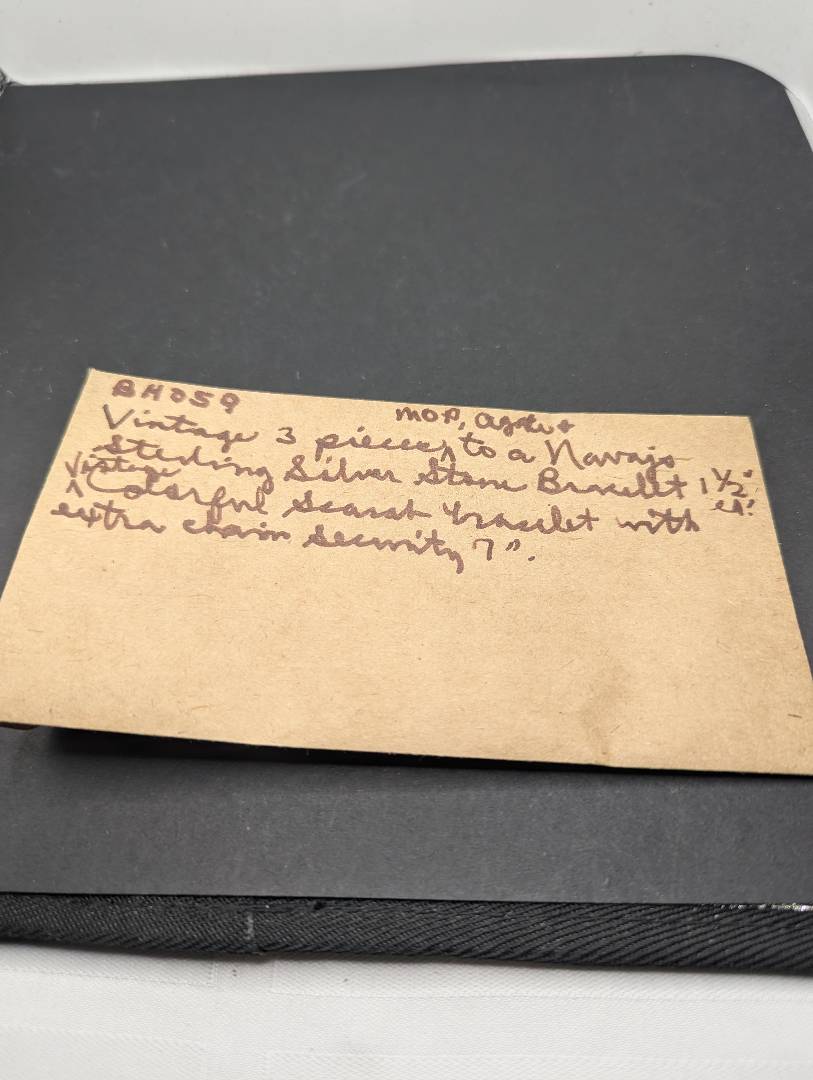 BH059
MOP, agate +
Vintage 3 pieces to a Navajo
Sterling Silver Stone Bracelet 1 1/2"
ea.
Vintage
Colorful Scarab bracelet with
extra chain security 7".